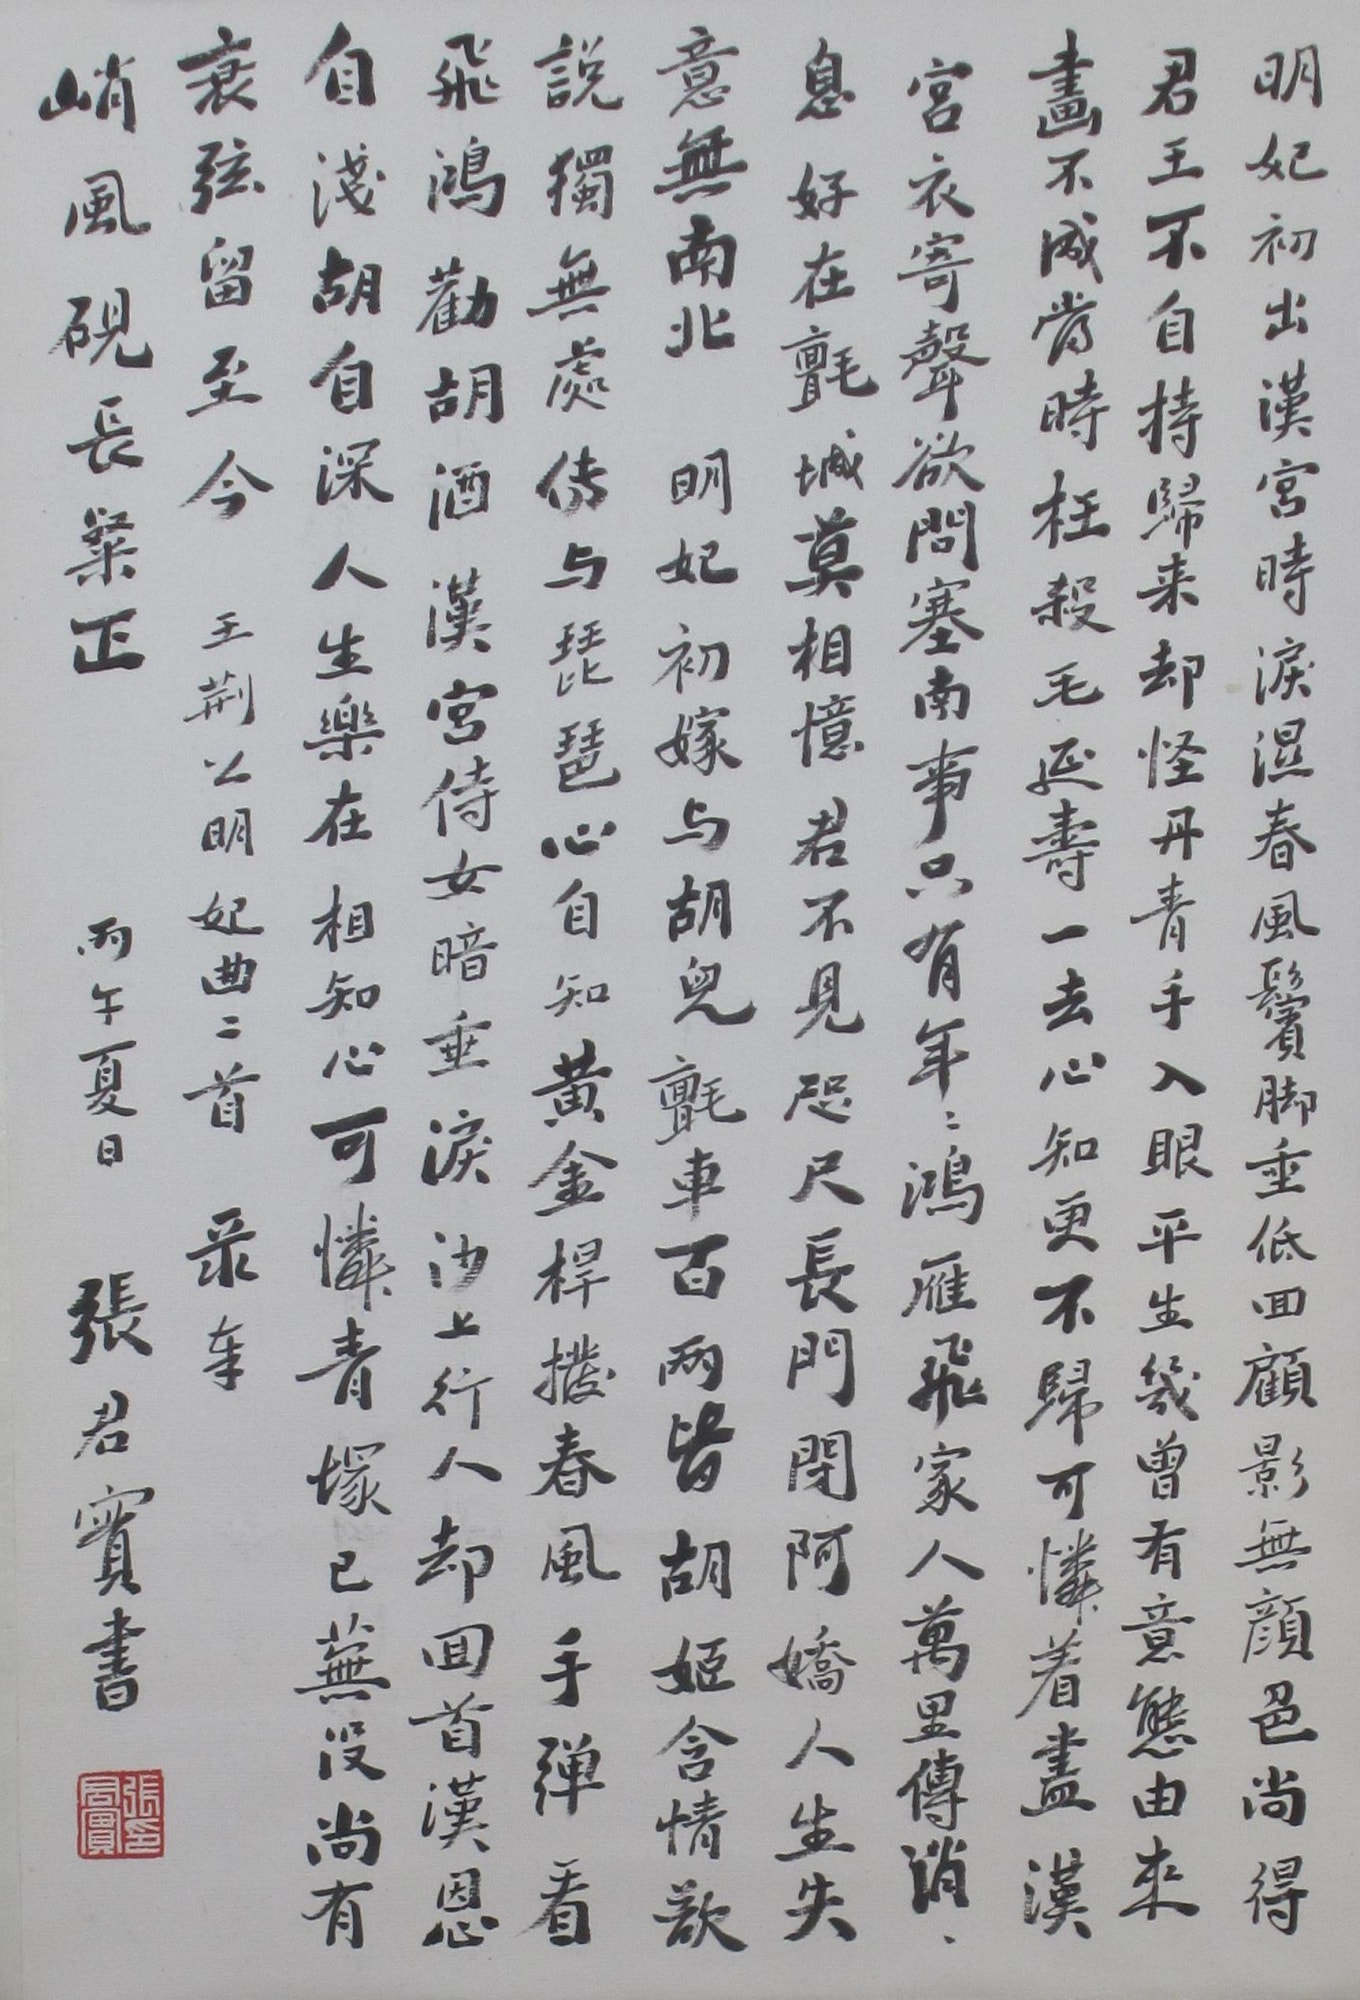 明妃初出漢宮時淚湿春風鬢脚垂低回顧影無顏色尚得
君王不自持歸来却怪丹青手入眼平生幾曾有意態由來
畫不成當時枉殺毛延壽一去心知更不歸可憐着盡漢
宮衣寄聲欲問塞南事只有年〻鴻雁飛家人萬里傳消
息好在氈城莫相憶君不見咫尺長門閉阿嬌人生失
意無南北 明妃初嫁与胡兒氈車百兩皆胡姬含情欲
說獨無處傳与琵琶心自知黃金桿撥春風手彈看
飛鴻勸胡酒漢宮侍女暗垂淚沙上行人却回首漢恩
自淺胡自深人生樂在相知心可憐青塚已蕪没尚有
哀弦留至今 王荆公明妃曲二首 录奉
峭風硯長粲正 丙午夏日 張君實書
張君實印